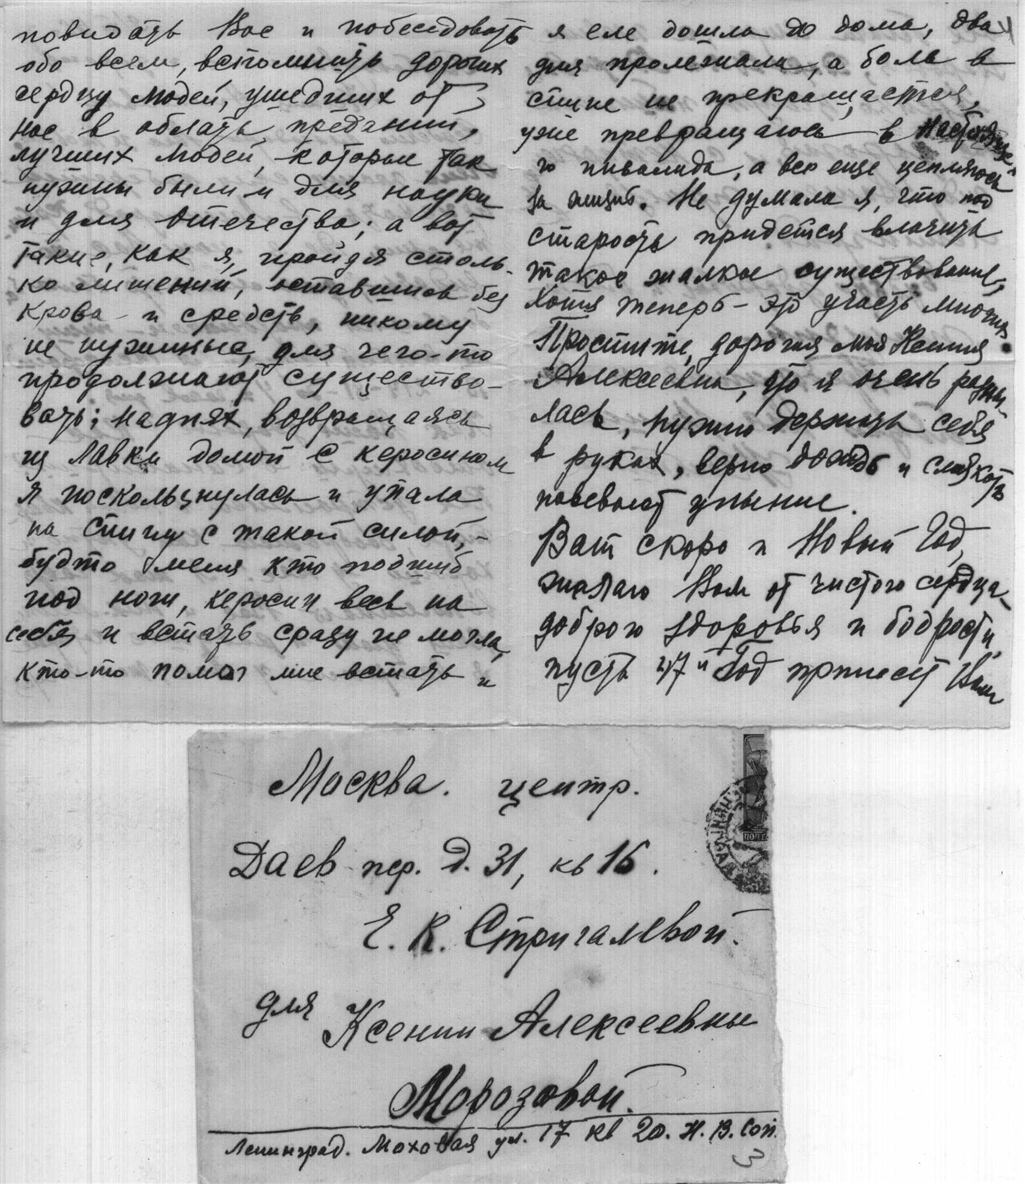 повидать Вас и побеседовать
обо всем, вспомнить дорогих
сердцу людей, ушедших от
нас в область преданий,
лучших людей, которые так
нужны были и для науки
и для Отечества; а вот
такие, как я, пройдя столь-
ко лишений, оставшись без
крова и средств, никому
не нужные, для чего-то
продолжают существо-
вать; на днях, возвращаясь
из лавки домой с керосином
я поскользнулась и упала
на спину с такой силой,-
будто меня кто подшиб
под ноги, керосин весь на
себя и встать сразу не могла,
кто-то помог мне встать и
я еле дошла до дома, два
дня пролежала, а боль в
спине не прекращается,
уже превращаюсь в настояще-
го инвалида, а все еще цепляюсь
за жизнь. Не думала я, что под
старость придется влачить
такое жалкое существование,
хотя теперь - это участь многих.
Простите, дорогая моя Ксения
Алексеевна, что я очень
лась, нужно держать себя
в руках, верно дождь и слякоть
навевают уныние.
Вот скоро и Новый Год,
желаю Вам от чистого сердца
доброго здоровья и бодрости,
пусть 47й Год принесет Вам
Москва. центр.
Даев пер. д. 31, кв 16.
Е. К. Стригалевой.
для Ксении Алексеевны
Морозовой.
Ленинград. Моховая ул. 17 кв 20. Н. В. Соп.
3